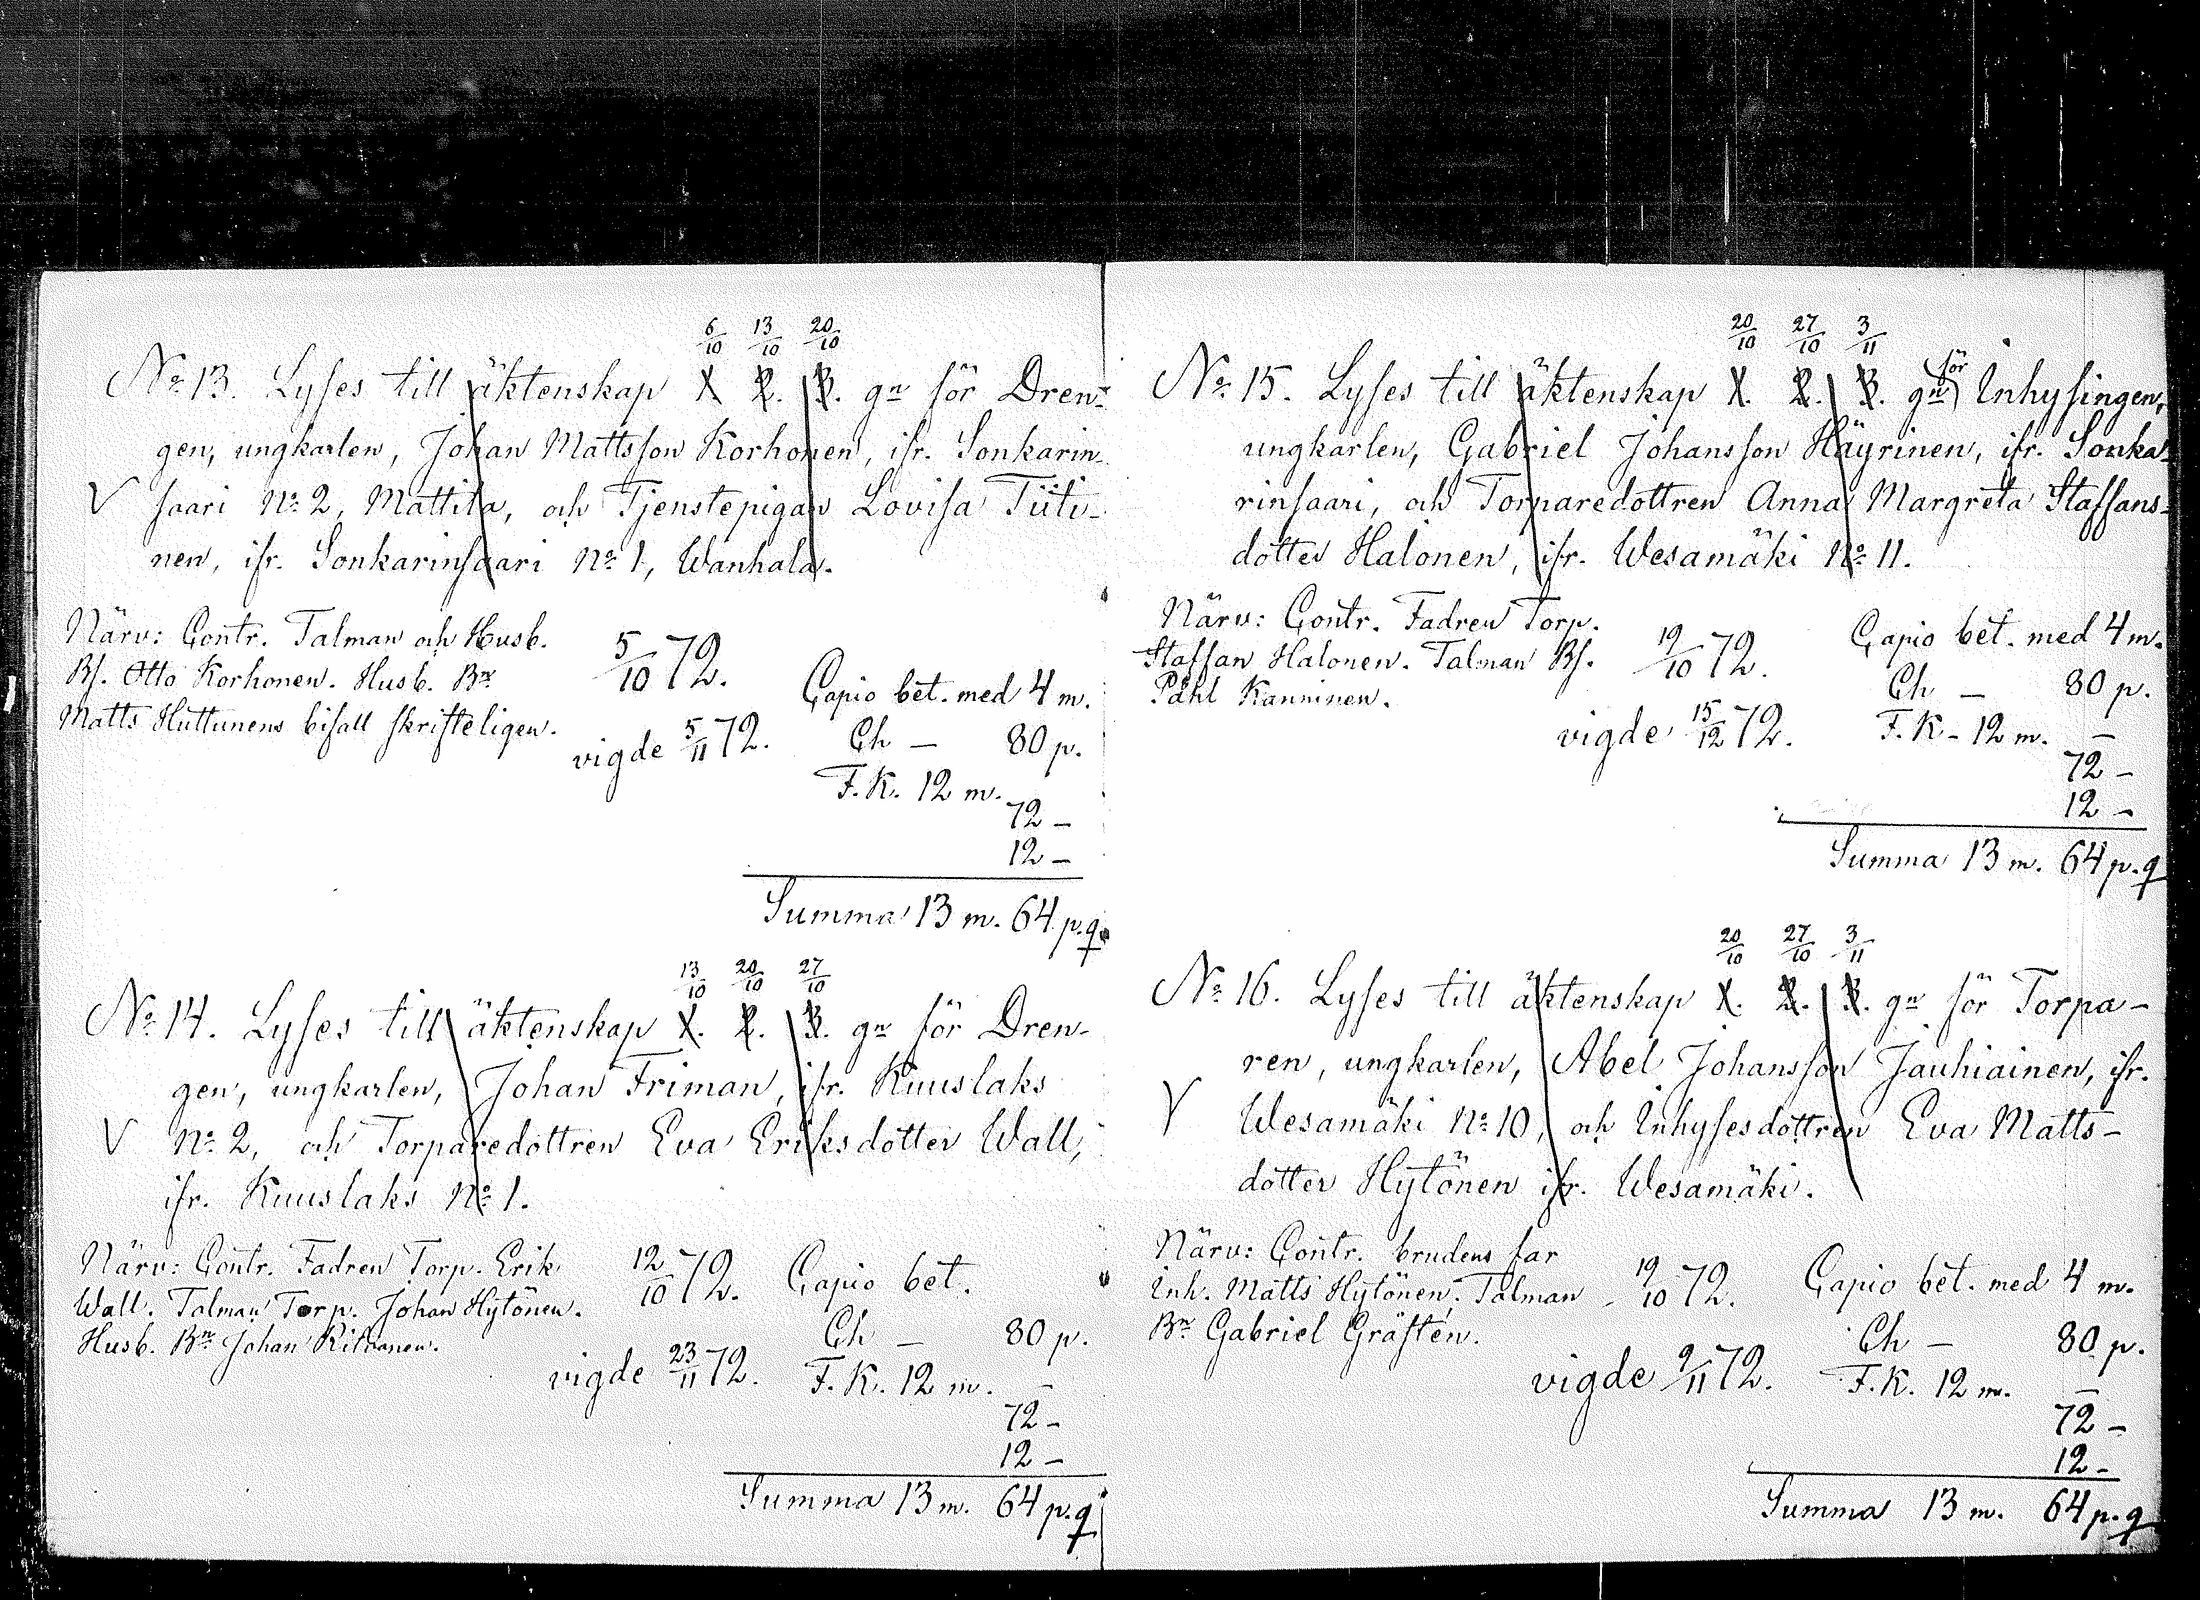 6/10 13/10 20/10
No 13. Lyses till äktenskap 1. 2. 3. gn för Dren-
gen, ungkarlen, Johan Mattsson Korhonen, ifr. Sonkarin-
V saari No 2, Mattila, och Tjenstepigan Lovisa Tiiti-
nen, ifr. Sonkarinsaari No 1, Wanhala.
Närv: Contr. Talman och Husb.
Bs. Otto Korhonen. Husb. Bn
Matts Huttunens bifall skrifteligen.
5/10 72.
vigde 5/11 72.
Capio bet. med 4 m.
Ch — 80 p.
F. K. 12 m.
72 —
12 —
Summa 13 m. 64 p.
13/10 20/10 27/10
No 14. Lyses till äktenskap 1. 2. 3. gn för Dren-
gen, ungkarlen, Johan Friman, ifr. Kuuslaks
V No 2, och Torparedottren Eva Eriksdotter Wall,
ifr. Kuuslaks No 1.
Närv: Contr. Fadren Torp. Erik
Wall. Talman Torp. Johan Hytönen.
Husb. Bn Johan
12/10 72.
vigde 23/11 72.
Capio bet.
Ch — 80 p.
F. K. 12 m. —
72 —
12 —
Summa 13 m. 64 p.
20/10 27/10 3/11
No 15. Lyses till äktenskap 1. 2. 3. gn för Inhysingen,
ungkarlen, Gabriel Johansson Häyrinen, ifr. Sonka-
rinsaari, och Torparedottren Anna Margreta Staffans-
dotter Halonen, ifr. Wesamäki No 11.
Närv: Contr. Fadren Torp.
Staffan Halonen. Talman Bs.
Påhl Kanninen.
19/10 72.
vigde 15/12 72.
Capio bet. med 4 m.
Ch — 80 p.
F. K - 12 m. —
72 —
12 —
Summa 13 m. 64 p.
20/10 27/10 3/11
No 16. Lyses till äktenskap 1. 2. 3. gn för Torpa-
ren, ungkarlen, Abel Johansson Jauhiainen, ifr.
V Wesamäki No 10, och Inhysesdottren Eva Matts-
dotter Hytönen ifr. Wesamäki.
Närv: Contr. brudens far
Inh. Matts Hytönen. Talman
Bn Gabriel Gråsten.
19/10 72.
vigde 9/11 72.
Capio bet. med 4 m.
Ch — 80 p.
F. K. 12 m. —
72 —
12 —
Summa 13 m. 64 p.